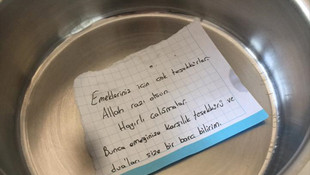 Emekleriniz için çok teşekkürler.
Allah razı olsun.
Hayırlı çalışmalar.
Bunca emeğinize karşılık teşekkürü ve
duaları size bir borç bilirim.